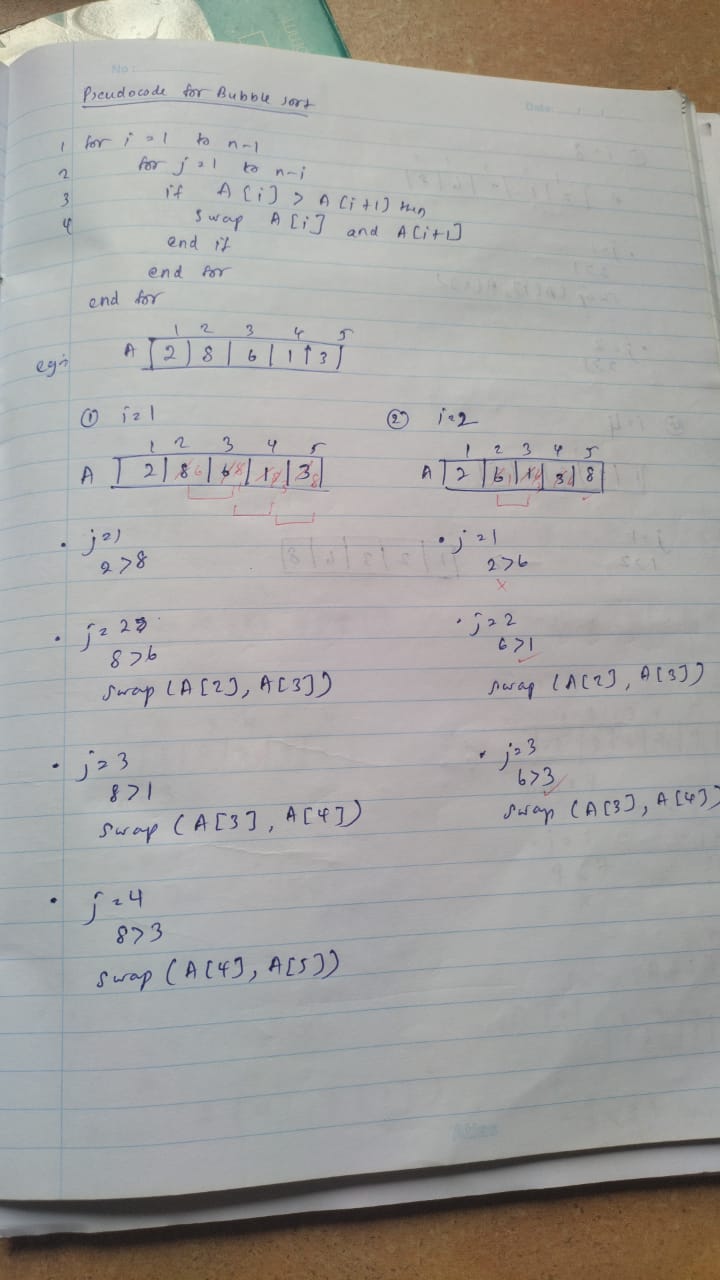 No:
Date:
Pseudocode for Bubble sort
1 for i = 1 to n-1
2 for j = 1 to n-i
3 if A[i] > A[i+1] then
4 swap A[i] and A[i+1]
end if
end for
end for
1 2 3 4 5
eg:- A 2 8 6 1 3
① i=1
1 2 3 4 5
A 2 8 6 6 8 1 8 3 8
• j=1
2>8
• j=2
8>6
swap (A[2], A[3])
• j=3
8>1
swap (A[3], A[4])
• j=4
8>3
swap (A[4], A[5])
② i=2
1 2 3 4 5
A 2 6 1 1 6 3 6 8
• j=1
2>6
x
• j=2
6>1
swap (A[2], A[3])
• j=3
6>3
swap (A[3], A[4])
Atlas